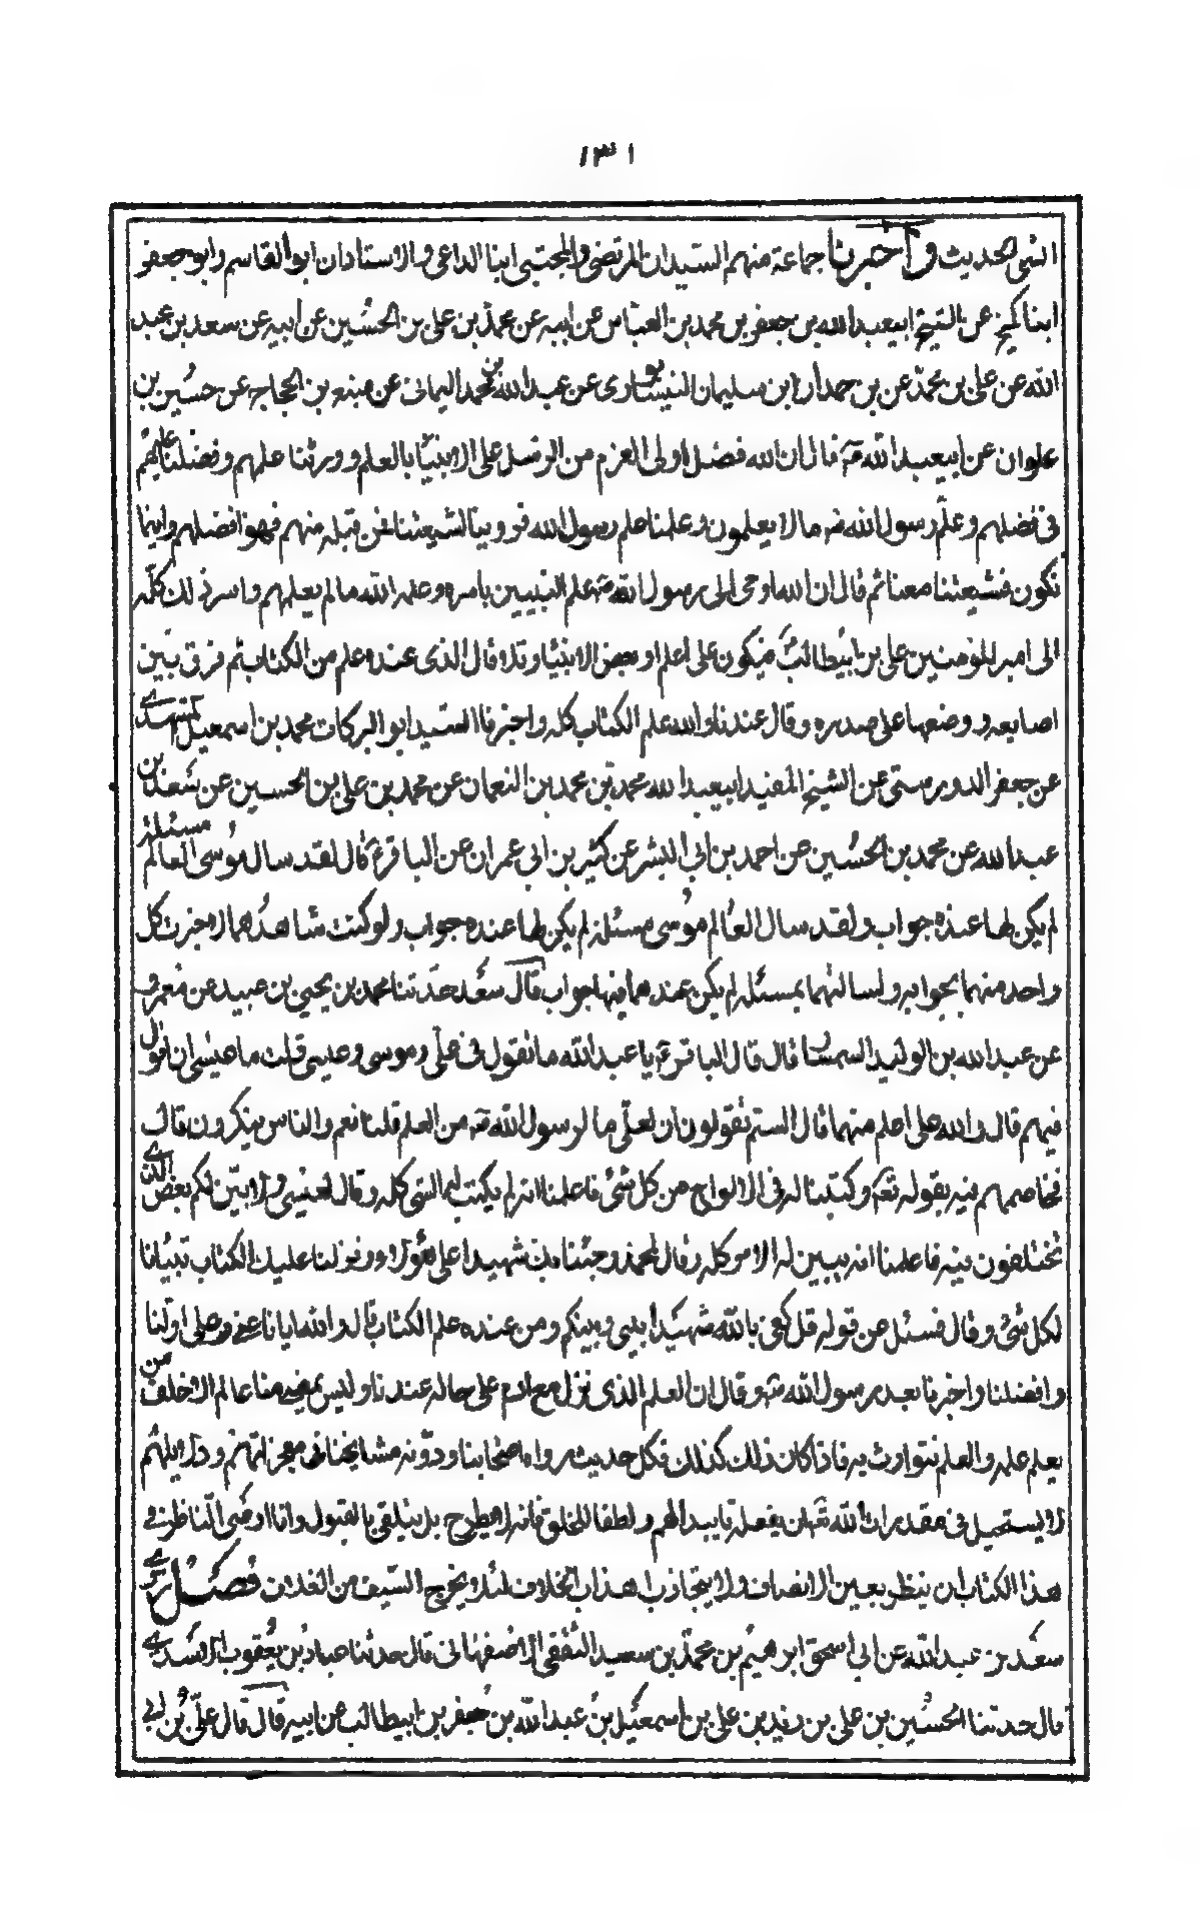 ١٣١
الشى الحديث واخبرنا جماعة منهم السيدان المرتضى والمجتبى ابنا الداعى والاستادان ابو القاسم وابو جعفر
ابنا كميح عن الشيخ ابيعبد الله بن جعفر بن محمد بن العباس عن ابيه عن محمد بن على بن الحسين عن ابيه عن سعد بن عبد
الله عن على بن محمد عن بن حمدان بن سليمان النيسابورى عن عبد الله بن محمد اليمانى عن منيع بن الحجاج عن حسين بن
علوان عن ابيعبد الله قال ان الله فضل اولى العزم من الرسل على الانبياء بالعلم وورثنا علمهم وفضلنا عليهم
فى فضلهم وعلم رسول الله ما لا يعلمون وعلمنا علم رسول الله فروينا لشيعتنا فمن قبله منهم فهو افضلهم واينما
نكون فشيعتنا معنا ثم قال ان الله اوحى الى رسول الله علم النبيين باسره وعلمه الله ما لم يعلمهم واسر ذلك كله
الى امير المؤمنين على بن ابيطالب فيكون على اعلم او بعض الانبياء وتلا قال الذى عنده علم من الكتاب ثم فرق بين
اصابعه ووضعها على صدره وقال عندنا والله علم الكتاب كله واخبرنا السيد ابو البركات محمد بن اسمعيل المشهدى
عن جعفر الدوريستى عن الشيخ المفيد ابيعبد الله محمد بن محمد بن النعمان عن محمد بن على بن الحسين عن سعد بن
عبد الله عن محمد بن الحسين عن احمد بن ابى البشر عن كثير بن ابى عمران عن الباقر قال لقد سال موسى العالم مسئلة
لم يكن لها عنده جواب ولقد سال العالم موسى مسئلة لم يكن لها عنده جواب ولو كنت شاهدهما لاخبرت كل
واحد منهما بجوابه ولسالتهما بمسئلة لم يكن عندهما فيها جواب قال سعد حدثنا محمد بن يحيى بن عبيد عن معمر و
عن عبد الله بن الوليد السمان قال قال الباقر يا عبد الله ما تقول فى على وموسى وعيسى قلت ما عيسى ان اقول
فيهم قال والله على اعلم منهما قال الستم تقولون ان لعلى ما لرسول الله من العلم قلنا نعم والناس ينكرون قال
فخاصمهم فيه بقوله تعه وكتبنا له فى الالواح من كل شئ فاعلمنا انه لم يكتب له الشى كله وقال لعيسى ولابين لكم بعض الذى
تختلفون فيه فاعلمنا انه لم يبين له الامر كله وقال لمحمد وجئنا بك شهيدا على هؤلاء ونزلنا عليك الكتاب تبيانا
لكل شئ وقال فسئل عن قوله قل كفى بالله شهيدا بينى وبينكم ومن عنده علم الكتاب قال والله ايانا عنى وعلى اولنا
وافضلنا واخبرنا بعد رسول الله وقال ان العلم الذى نزل مع ادم على حاله عندنا وليس يمضى منا عالم الا خلف من
يعلم علمه والعلم نتوارث به فاذا كان ذلك كذلك فكل حديث رواه اصحابنا ودونه مشايخنا فى معجزاتهم ودلايلهم
لا يستحيل فى مقدورات الله ان يفعله تاييدا لهم ولطفا للخلق فانه لا يطرح بل يتلقى بالقبول وانا ارضى الناظر فى
هذا الكتاب ان ينظر بعين الانصاف ولا يتجاذب اهداب الخلاف لئلا يخرج السيف من الغلاف فصل
سعد بن عبد الله عن ابى اسحق ابرهيم بن محمد بن سعيد الثقفى الاصفهانى قال حدثنا عباد بن يعقوب الاسدى
قال حدثنا الحسين بن على بن زيد بن على بن اسمعيل بن عبد الله بن جعفر بن ابيطالب عن ابيه قال قال على بن ابى